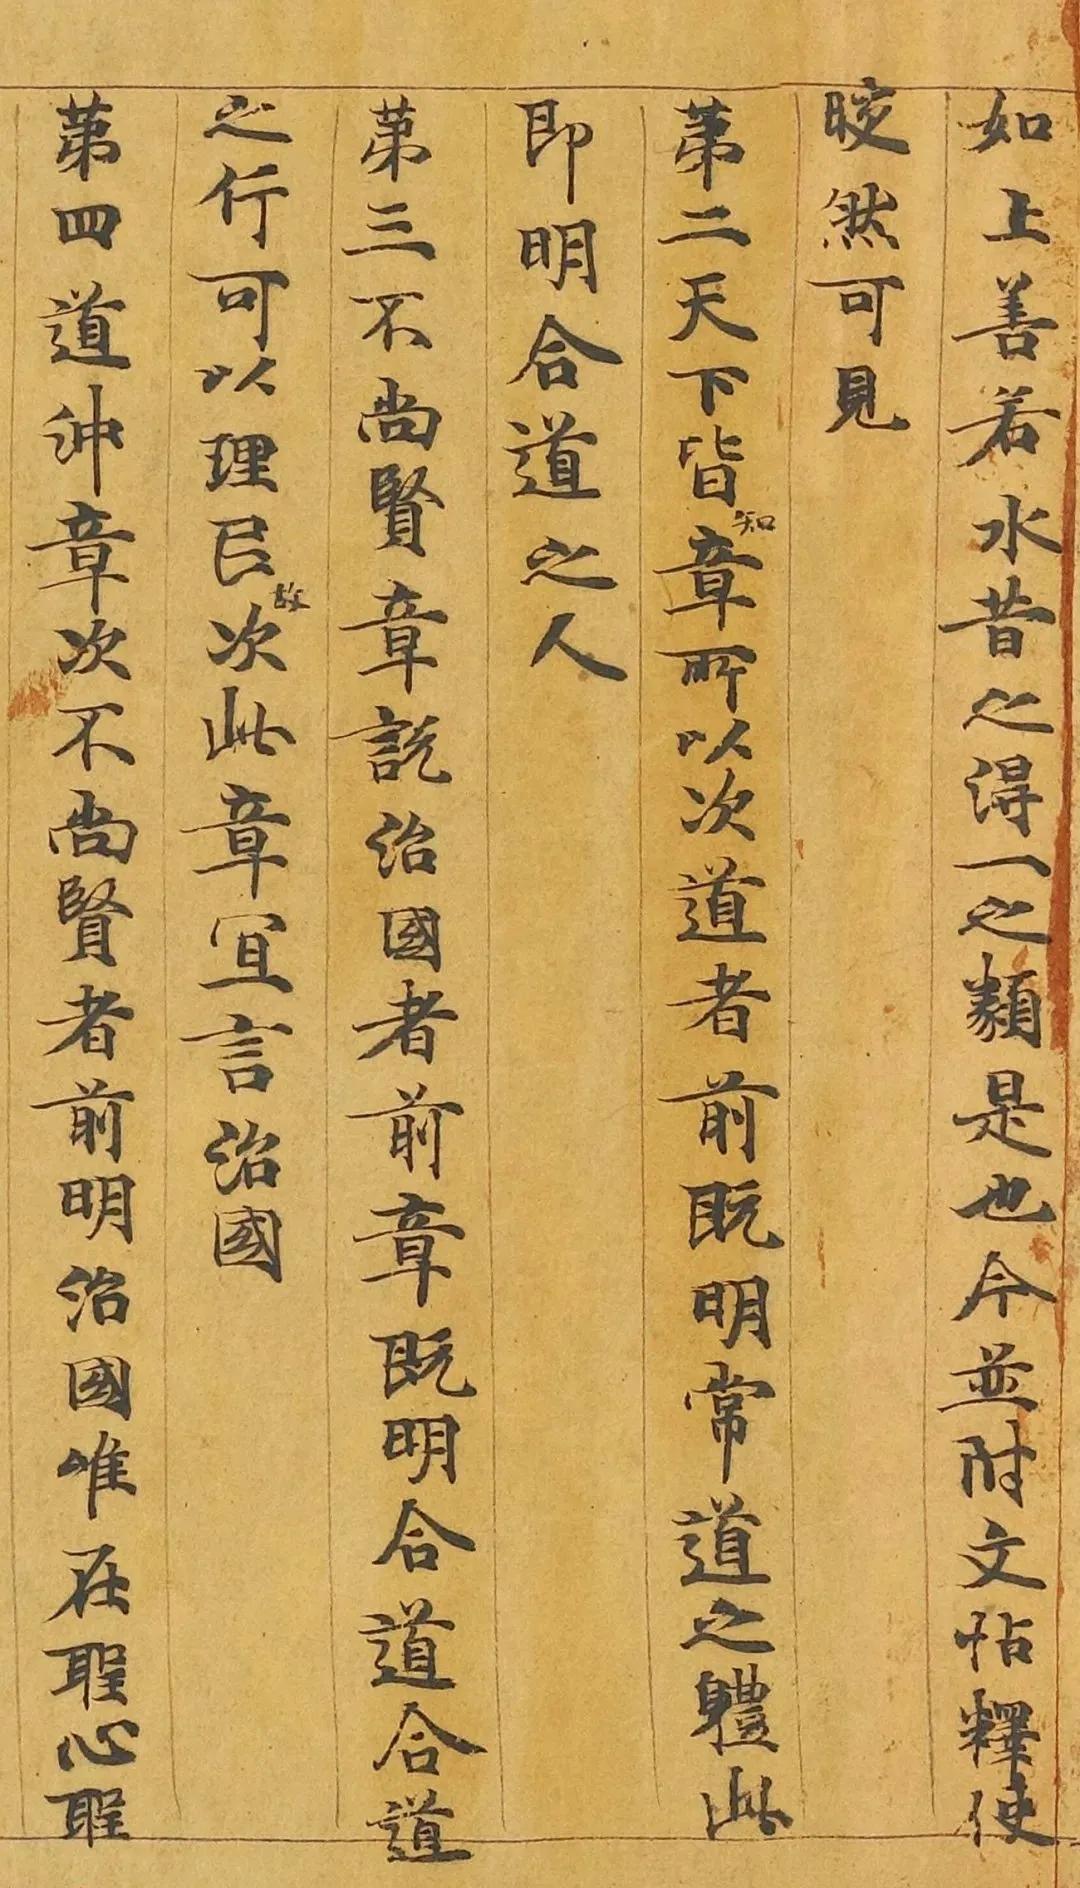 如上善若水昔之得一之類是也今並附文帖釋使
晈然可見
第二天下皆知章所以次道者前既明常道之體此
即明合道之人
第三不尚賢章說治國者前章既明合道合道
之行可以理民故次此章宜言治國
第四道沖章次不尚賢者前明治國唯在聖心聖